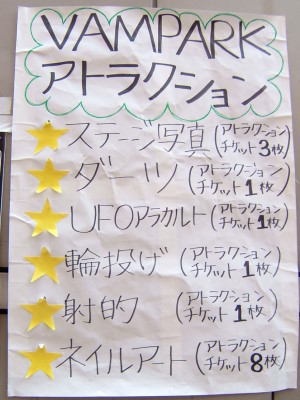 VAMPARK
アトラクション
ステージ写真 (アトラクションチケット3枚)
ダーツ (アトラクションチケット1枚)
UFOアラカルト (アトラクションチケット1枚)
輪投げ (アトラクションチケット1枚)
射的 (アトラクションチケット1枚)
ネイルアート (アトラクションチケット8枚)